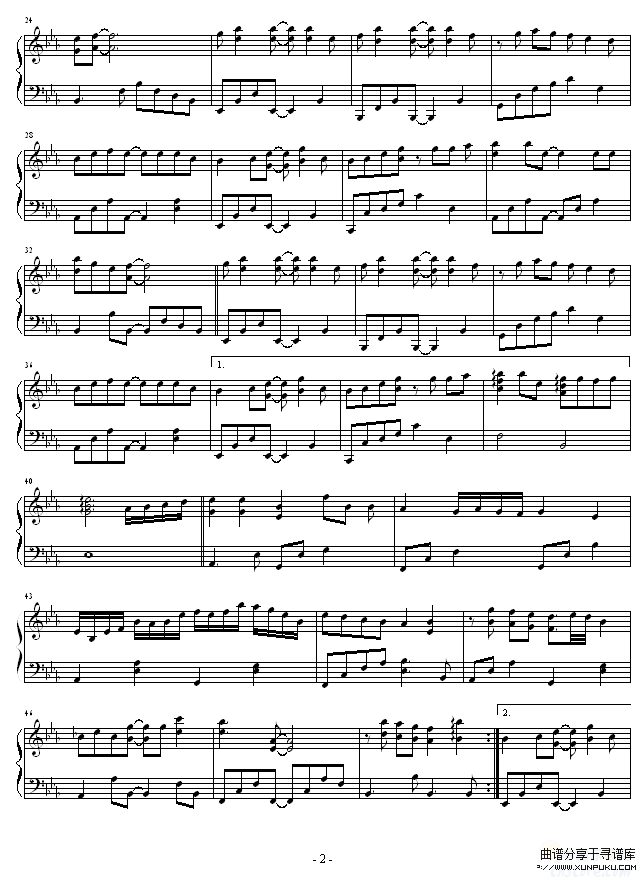 24
28
32
36
1.
40
43
46
2.
- 2 -
曲谱分享于寻谱库
WWW.XUNPUKU.COM